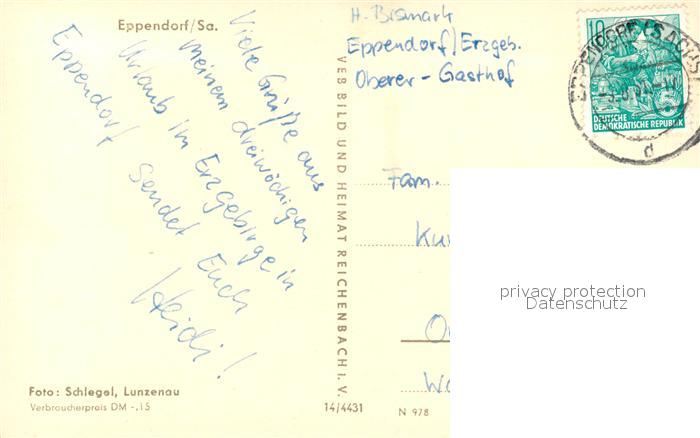 Eppendorf/Sa.
Viele Grüße aus
meinem dreiwöchigen
Urlaub im Erzgebirge in
Eppendorf Sendet Euch
Heidi!
Foto: Schlegel, Lunzenau
Verbraucherpreis DM -.15
VEB BILD UND HEIMAT REICHENBACH I. V.
14/4431
N 978
H. Bismark
Eppendorf/Erzgeb.
Oberer-Gasthof
10
DEUTSCHE
DEMOKRATISCHE REPUBLIK
EPPENDORF (SACHS)
d
Fam.
privacy protection
Datenschutz